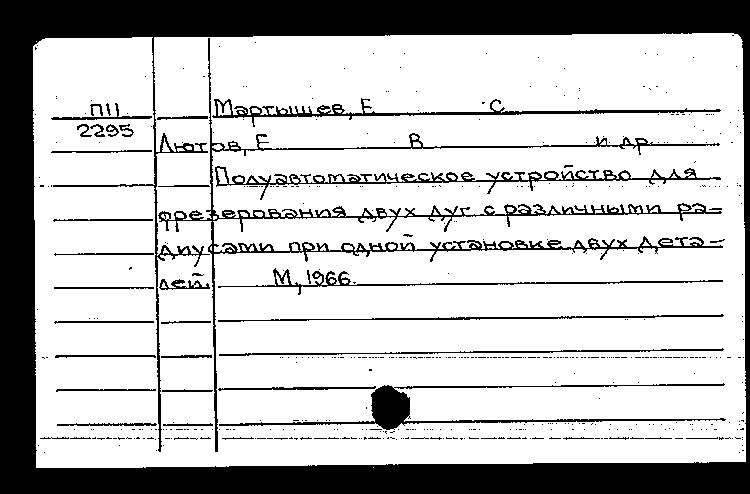 П11 Мартышев, Е С
2295
Лютов, Е В и др.
Полуавтоматическое устройство для
фрезерования двух дуг с различными ра-
диусами при одной установке двух дета-
лей. М, 1966.